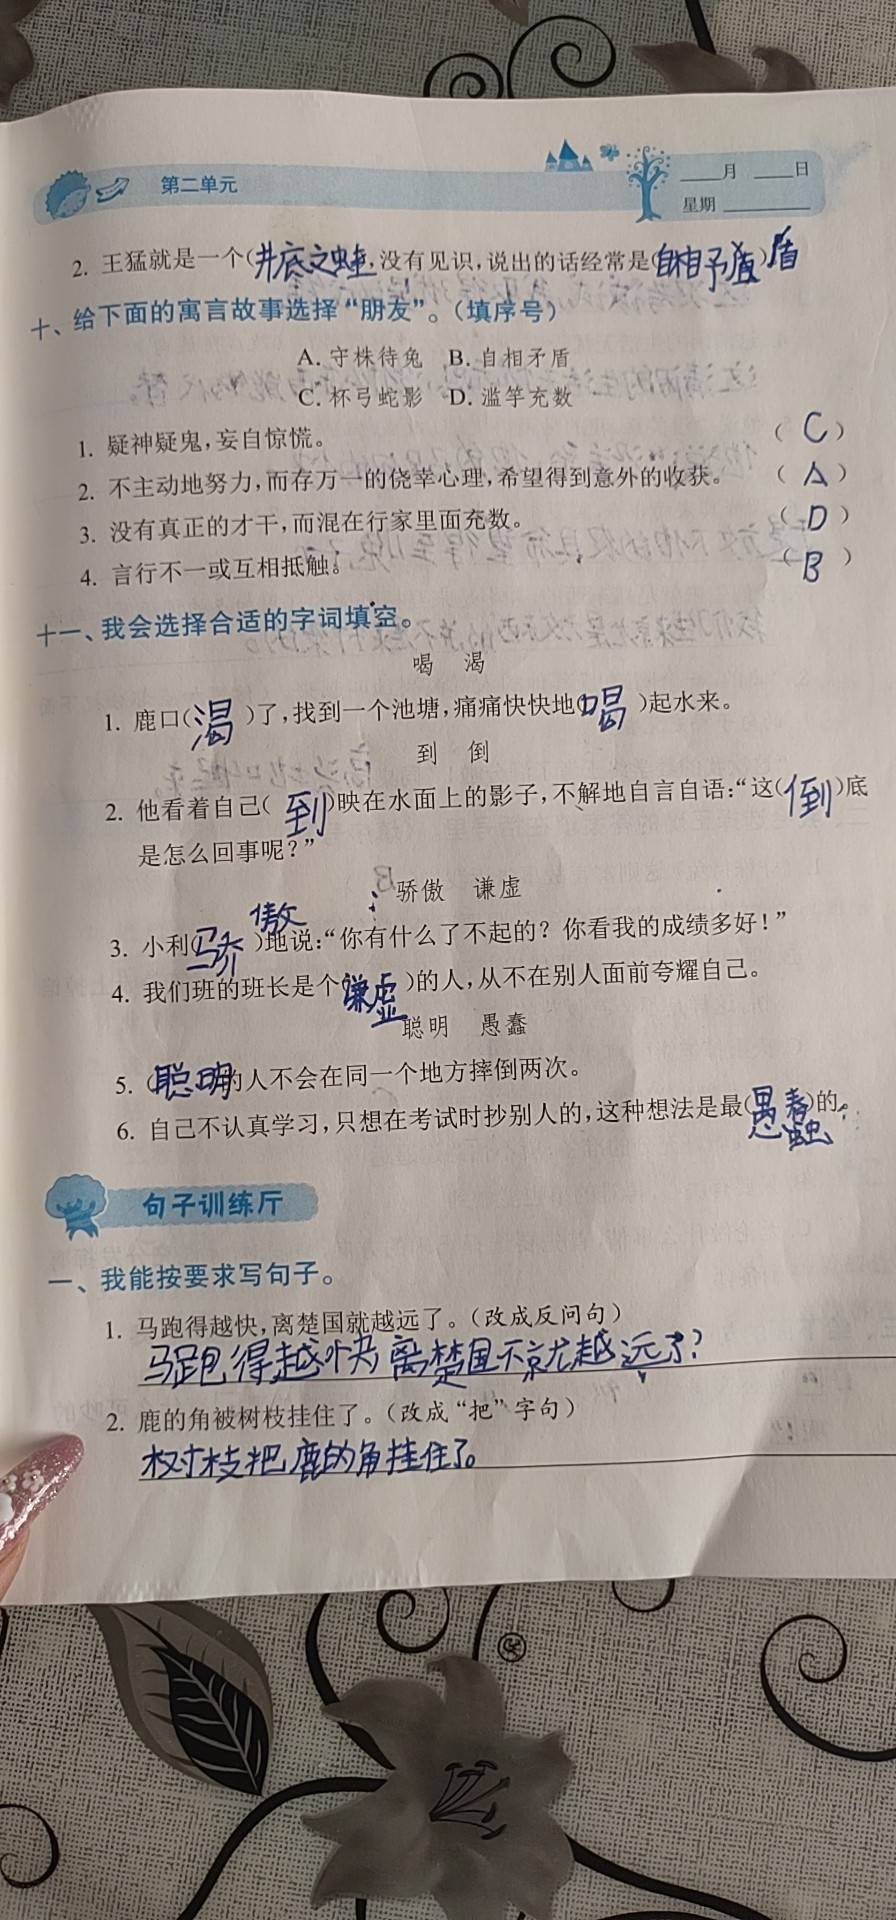 第二单元
____月 ____日
星期 ______
2. 王猛就是一个(井底之蛙),没有见识,说出的话经常是(自相予盾)盾
十、给下面的寓言故事选择“朋友”。(填序号)
A. 守株待兔 B. 自相矛盾
C. 杯弓蛇影 D. 滥竽充数
1. 疑神疑鬼,妄自惊慌。 ( C )
2. 不主动地努力,而存万一的侥幸心理,希望得到意外的收获。 ( A )
3. 没有真正的才干,而混在行家里面充数。 ( D )
4. 言行不一或互相抵触。 ( B )
十一、我会选择合适的字词填空。
喝 渴
1. 鹿口(渴)了,找到一个池塘,痛痛快快地(喝)起水来。
到 倒
2. 他看着自己(到)映在水面上的影子,不解地自言自语:“这(倒)底
是怎么回事呢?”
骄傲 谦虚
3. 小利(骄傲)地说:“你有什么了不起的?你看我的成绩多好!”
4. 我们班的班长是个(谦虚)的人,从不在别人面前夸耀自己。
聪明 愚蠢
5. (聪明)的人不会在同一个地方摔倒两次。
6. 自己不认真学习,只想在考试时抄别人的,这种想法是最(愚蠢)的。
句子训练厅
一、我能按要求写句子。
1. 马跑得越快,离楚国就越远了。(改成反问句)
马跑得越快离楚国不就越远了?
2. 鹿的角被树枝挂住了。(改成“把”字句)
树枝把鹿的角挂住了。